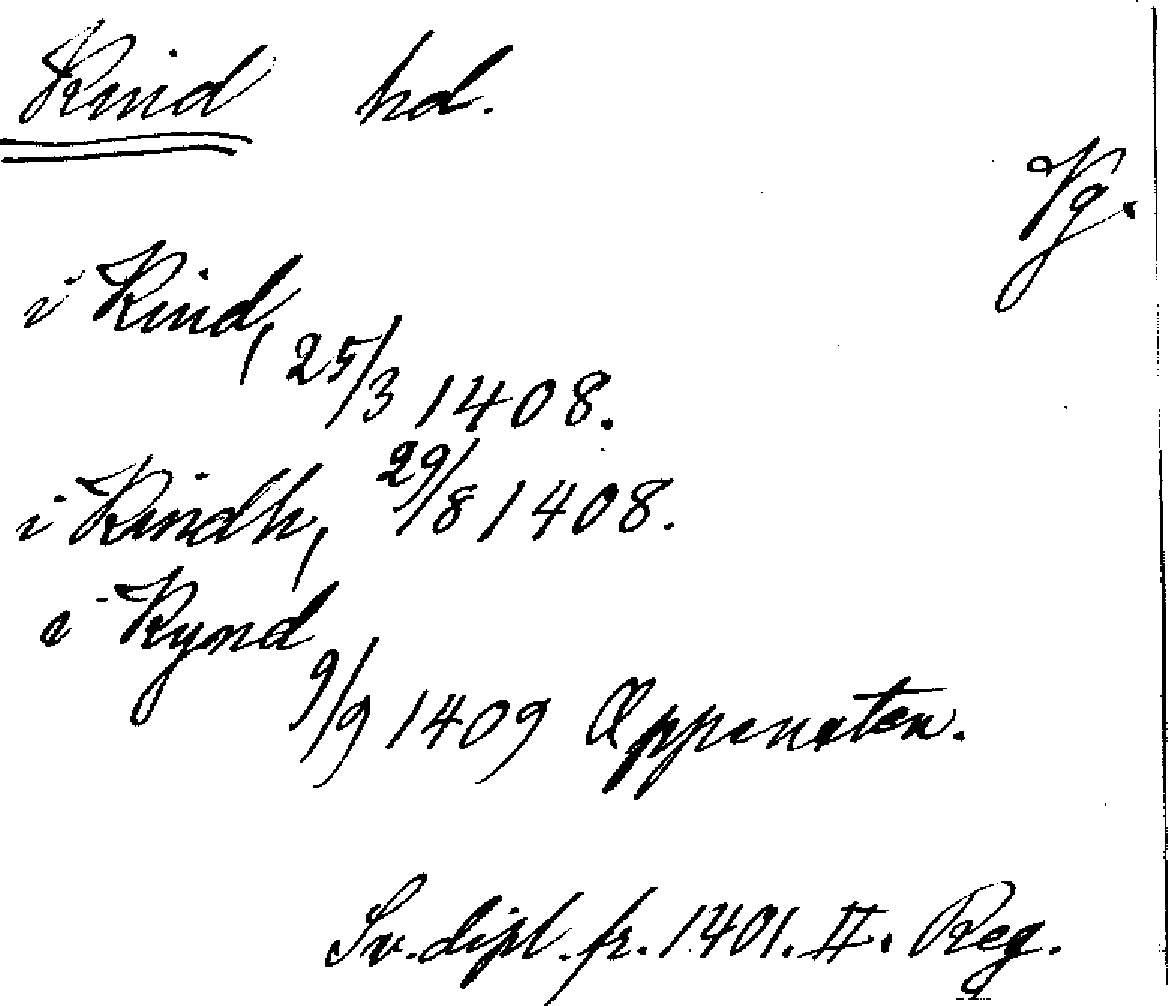 Kind hd.
Vg.
i Kind, 25/3 1408.
i Kindh, 29/8 1408.
i Kynd 9/9 1409 Öppensten.
Sv. dipl. fr. 1401. II. Reg.